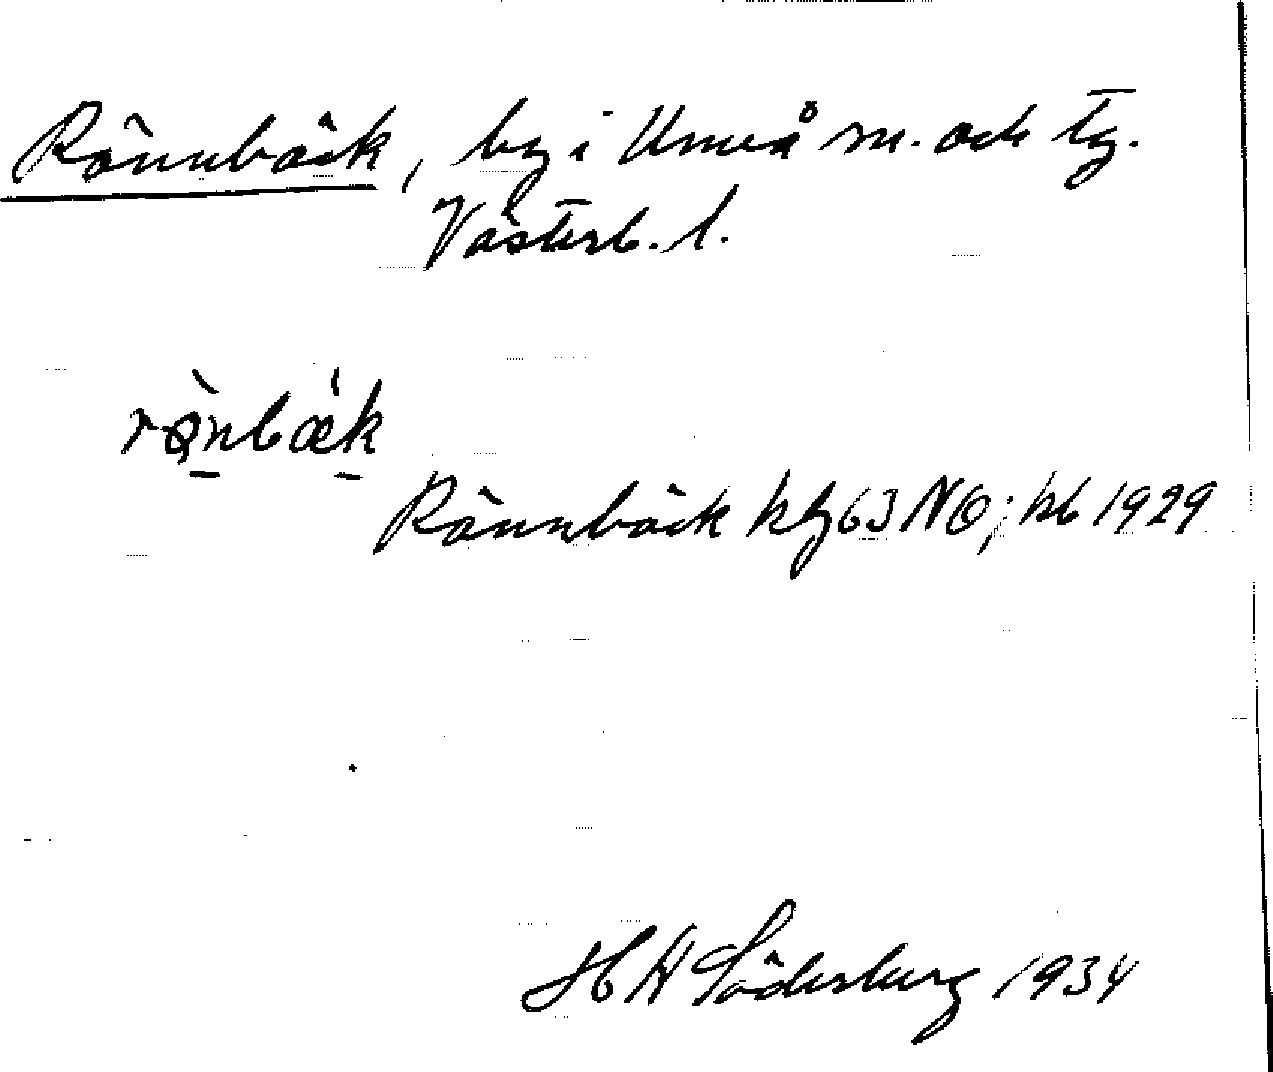 Rönnbäck, by i Umeå sn. och tg.
Västerb. l.
rönbæk
Rönnbäck kbl 63 NO; kb 1929
H A Söderberg 1934